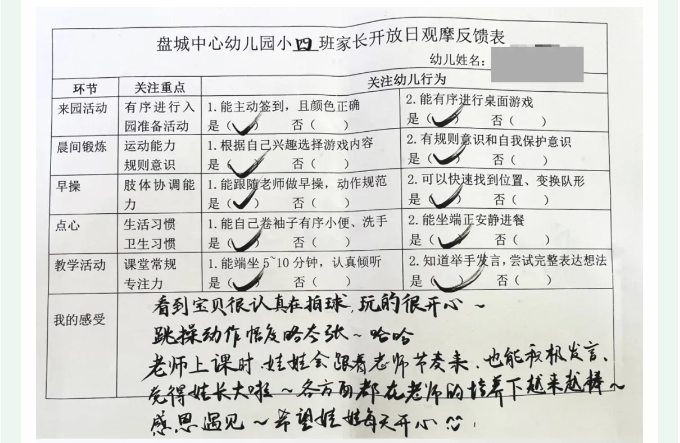 盘城中心幼儿园小四班家长开放日观摩反馈表
幼儿姓名：
环节 关注重点 关注幼儿行为
来园活动 有序进行入园准备活动 1.能主动签到，且颜色正确 是（✓） 否（ ） 2.能有序进行桌面游戏 是（✓） 否（ ）
晨间锻炼 运动能力 规则意识 1.根据自己兴趣选择游戏内容 是（✓） 否（ ） 2.有规则意识和自我保护意识 是（✓） 否（ ）
早操 肢体协调能力 1.能跟随老师做早操，动作规范 是（✓） 否（ ） 2.可以快速找到位置、变换队形 是（✓） 否（ ）
点心 生活习惯 卫生习惯 1.能自己卷袖子有序小便、洗手 是（✓） 否（ ） 2.能坐端正安静进餐 是（✓） 否（ ）
教学活动 课堂常规 专注力 1.能端坐5~10分钟，认真倾听 是（✓） 否（ ） 2.知道举手发言，尝试完整表达想法 是（✓） 否（ ）
我的感受
看到宝贝很认真在拍球，玩的很开心~
跳操动作幅度略夸张~哈哈
老师上课时，娃娃会跟着老师节奏来，也能积极发言，
觉得娃长大啦~各方面都在老师的培养下越来越棒~
感恩遇见~希望娃娃每天开心